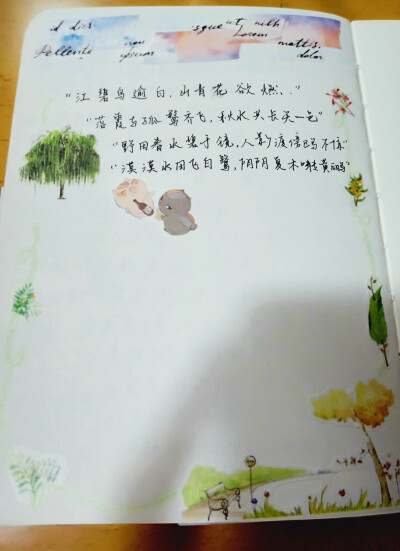 Pellente ipsum Lorem mattis. dolor
“江碧鸟逾白,山青花欲燃、.”
“落霞与孤鹜齐飞,秋水共长天一色”
“野田春水碧于镜,人影渡傍鸥不惊”
“漠漠水田飞白鹭,阴阴夏木啭黄鹂”